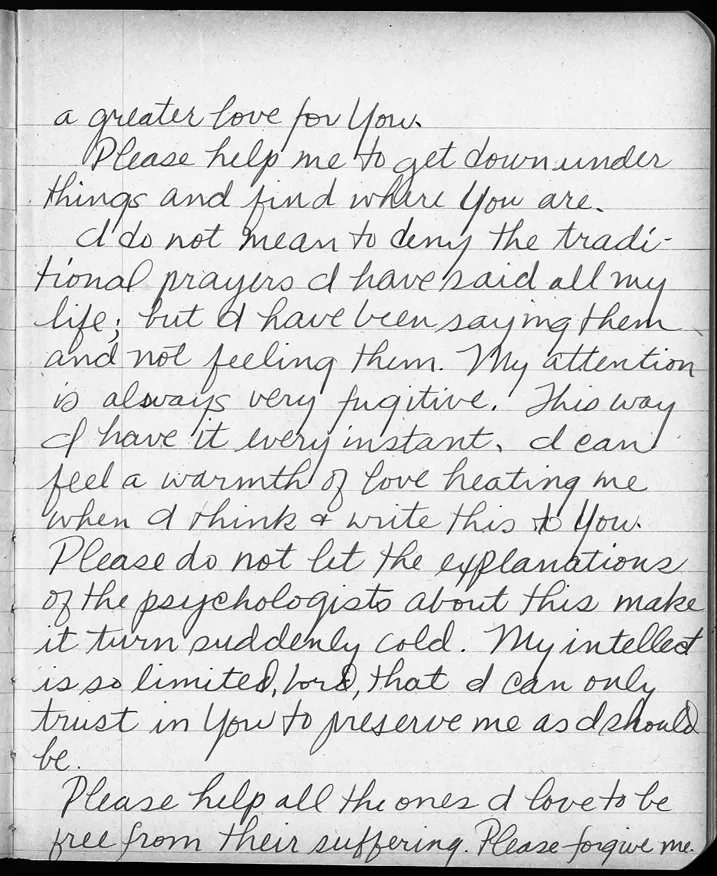 a greater love for You.
Please help me to get down under
things and find where You are.
I do not mean to deny the tradi-
tional prayers I have said all my
life; but I have been saying them
and not feeling them. My attention
is always very fugitive. This way
I have it every instant. I can
feel a warmth of love heating me
when I think & write this to You.
Please do not let the explanations
of the psychologists about this make
it turn suddenly cold. My intellect
is so limited, Lord, that I can only
trust in You to preserve me as I should
be.
Please help all the ones I love to be
free from their suffering. Please forgive me.